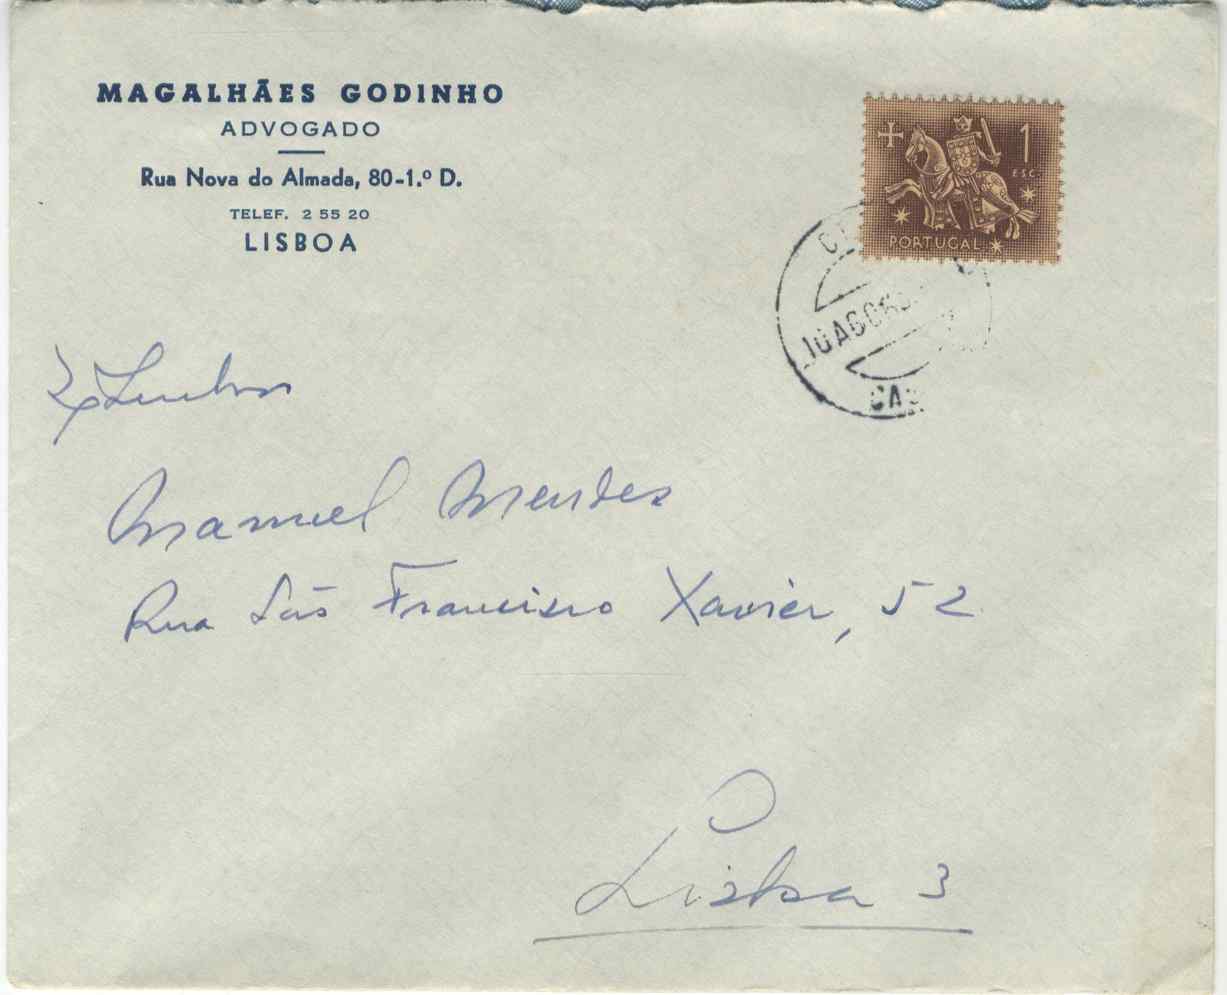 MAGALHÃES GODINHO
ADVOGADO
Rua Nova do Almada, 80-1.º D.
TELEF. 2 55 20
LISBOA
1
ESC.
PORTUGAL
10 AGO
CAS
Manuel Mendes
Rua São Francisco Xavier, 52
Lisboa 3